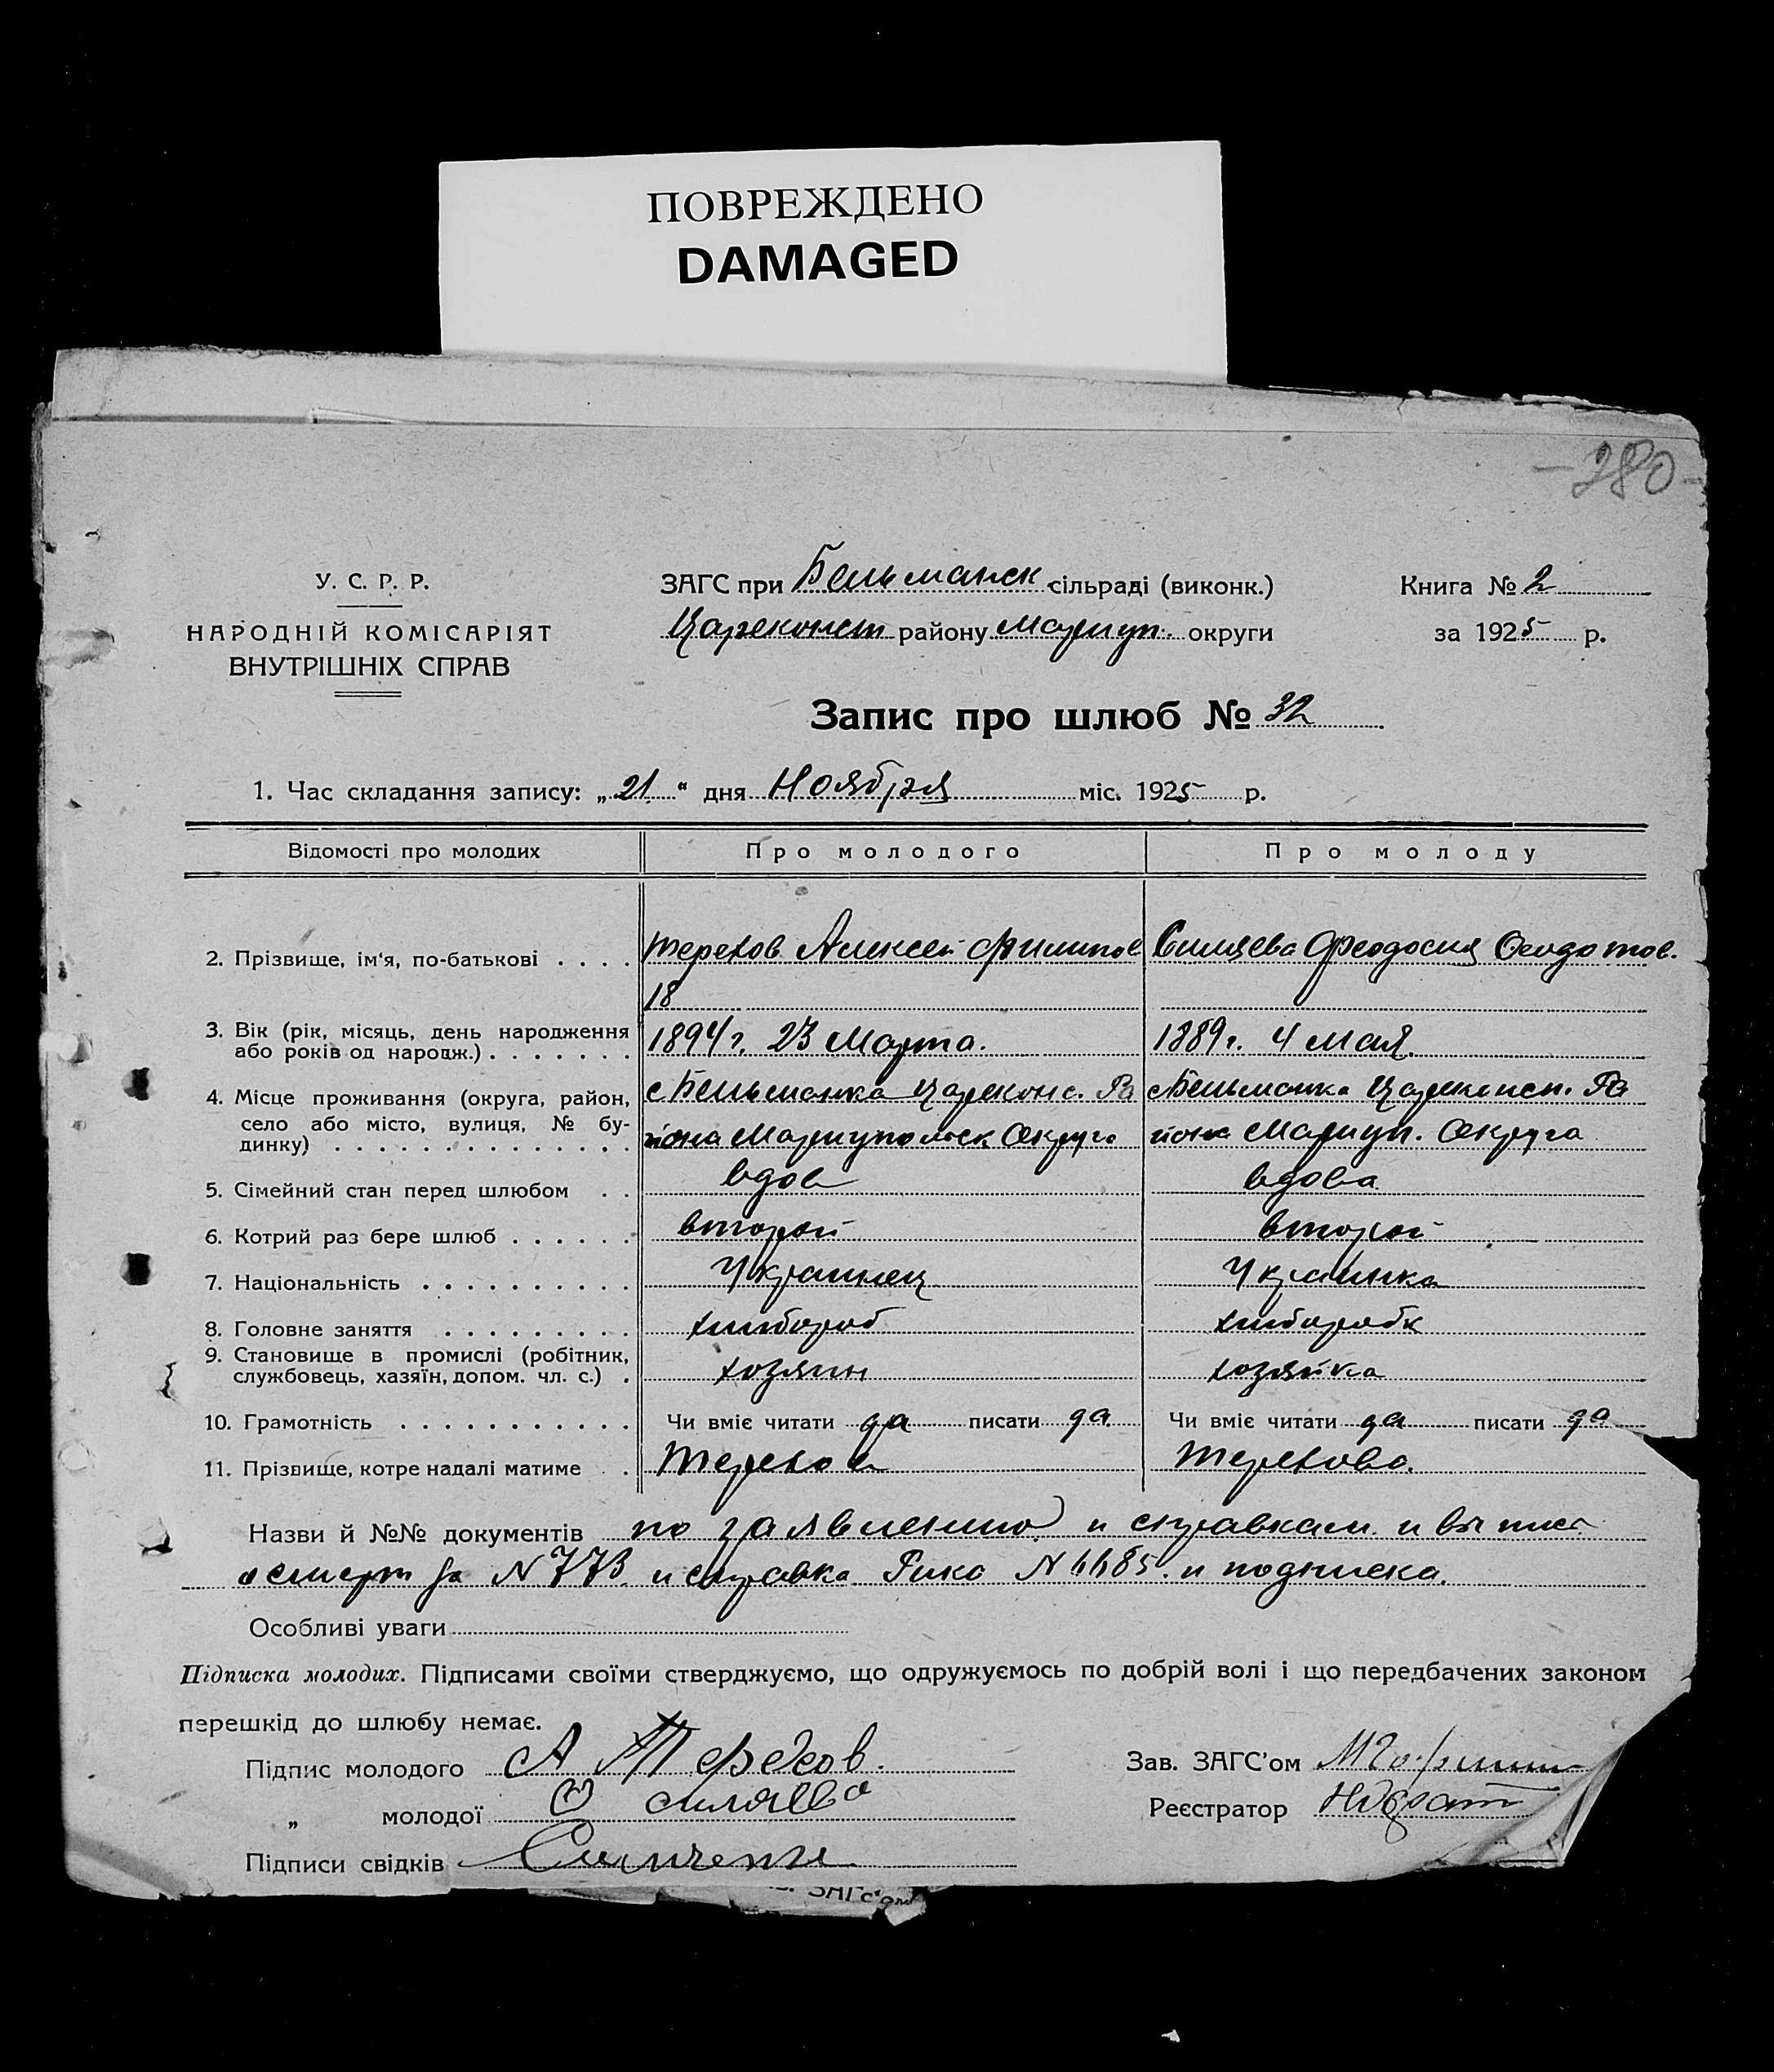 ПОВРЕЖДЕНО
DAMAGED
-280-
У. С. Р. Р.
НАРОДНІЙ КОМІСАРІЯТ
ВНУТРІШНІХ СПРАВ
ЗАГС при Бельманск сільраді (виконк.)
Цареконст району Мариуп. округи
Книга № 2
за 1925 р.
Запис про шлюб № 32
1. Час складання запису: „21" дня Ноября міс. 1925 р.
Відомості про молодих
Про молодого
Про молоду
2. Прізвище, ім'я, по-батькові . . . .
Терехов Алексей Филипов
Феодосия Феодотов.
18
3. Вік (рік, місяць, день народження
або років од народж.) . . . . . . .
1894 г. 23 Марта.
1889 г. 4 Мая.
4. Місце проживання (округа, район,
село або місто, вулиця, № бу-
динку) . . . . . . . . . . . . . .
с Бельманка Цареконс. Ра
йона Мариупольск Округа
с Бельманка Цареконсп. Ра
йона Мариуп. Округа
5. Сімейний стан перед шлюбом . .
вдов
вдова
6. Котрий раз бере шлюб . . . . . .
второй
второй
7. Національність . . . . . . . . . .
Украинец
Украинка
8. Головне заняття . . . . . . . . .
хлибороб
хлиборобк
9. Становище в промислі (робітник,
службовець, хазяїн, допом. чл. с.) .
хозяин
хозяйка
10. Грамотність . . . . . . . . . . .
Чи вміє читати да писати да
Чи вміє читати да писати да
11. Прізвище, котре надалі матиме . .
Терехов
Терехова.
Назви й №№ документів по заявлению и справкам и випис
о смерт за N 773 и справка Рика N 4485. и подписка.
Особливі уваги
Підписка молодих. Підписами своїми стверджуємо, що одружуємось по добрій волі і що передбачених законом
перешкід до шлюбу немає.
Підпис молодого А Терехов.
„ молодої
Підписи свідків
Зав. ЗАГС'ом
Реєстратор
ЗАГС'ом